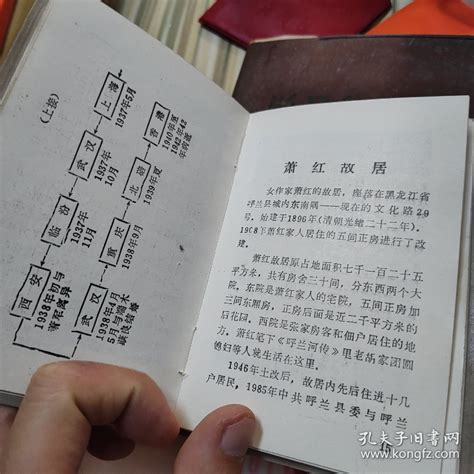 (上接)
上海
1937年5月
武汉
1937年
10月
临汾
1937年
11月
西安
1938年初与
萧军离异
武汉
1938年4月
5月与端木
蕻良结婚
重庆
1938年9月
北碚
1939年夏
香港
1940年至
萧红故居
女作家萧红的故居，座落在黑龙江省
呼兰县城内东南隅——现在的文化路29
号。始建于1896年（清朝光绪二十二年）。
1908年萧红家人居住的五间正房进行了改
建。
萧红故居原占地面积七千一百二十五
平方米，共有房舍三十间，分东西两个大
院。东院是萧红家人的宅院，五间正房加
三间东厢房，正房后面是近二千平方米的
后花园。西院是张家房客和佃户居住的地
方。萧红笔下《呼兰河传》里老胡家团圆
媳妇等人就生活在这里。
1946年土改后，故居内先后住进十几
户居民，1985年中共呼兰县委与呼兰
孔夫子旧书网
www.kongfz.com